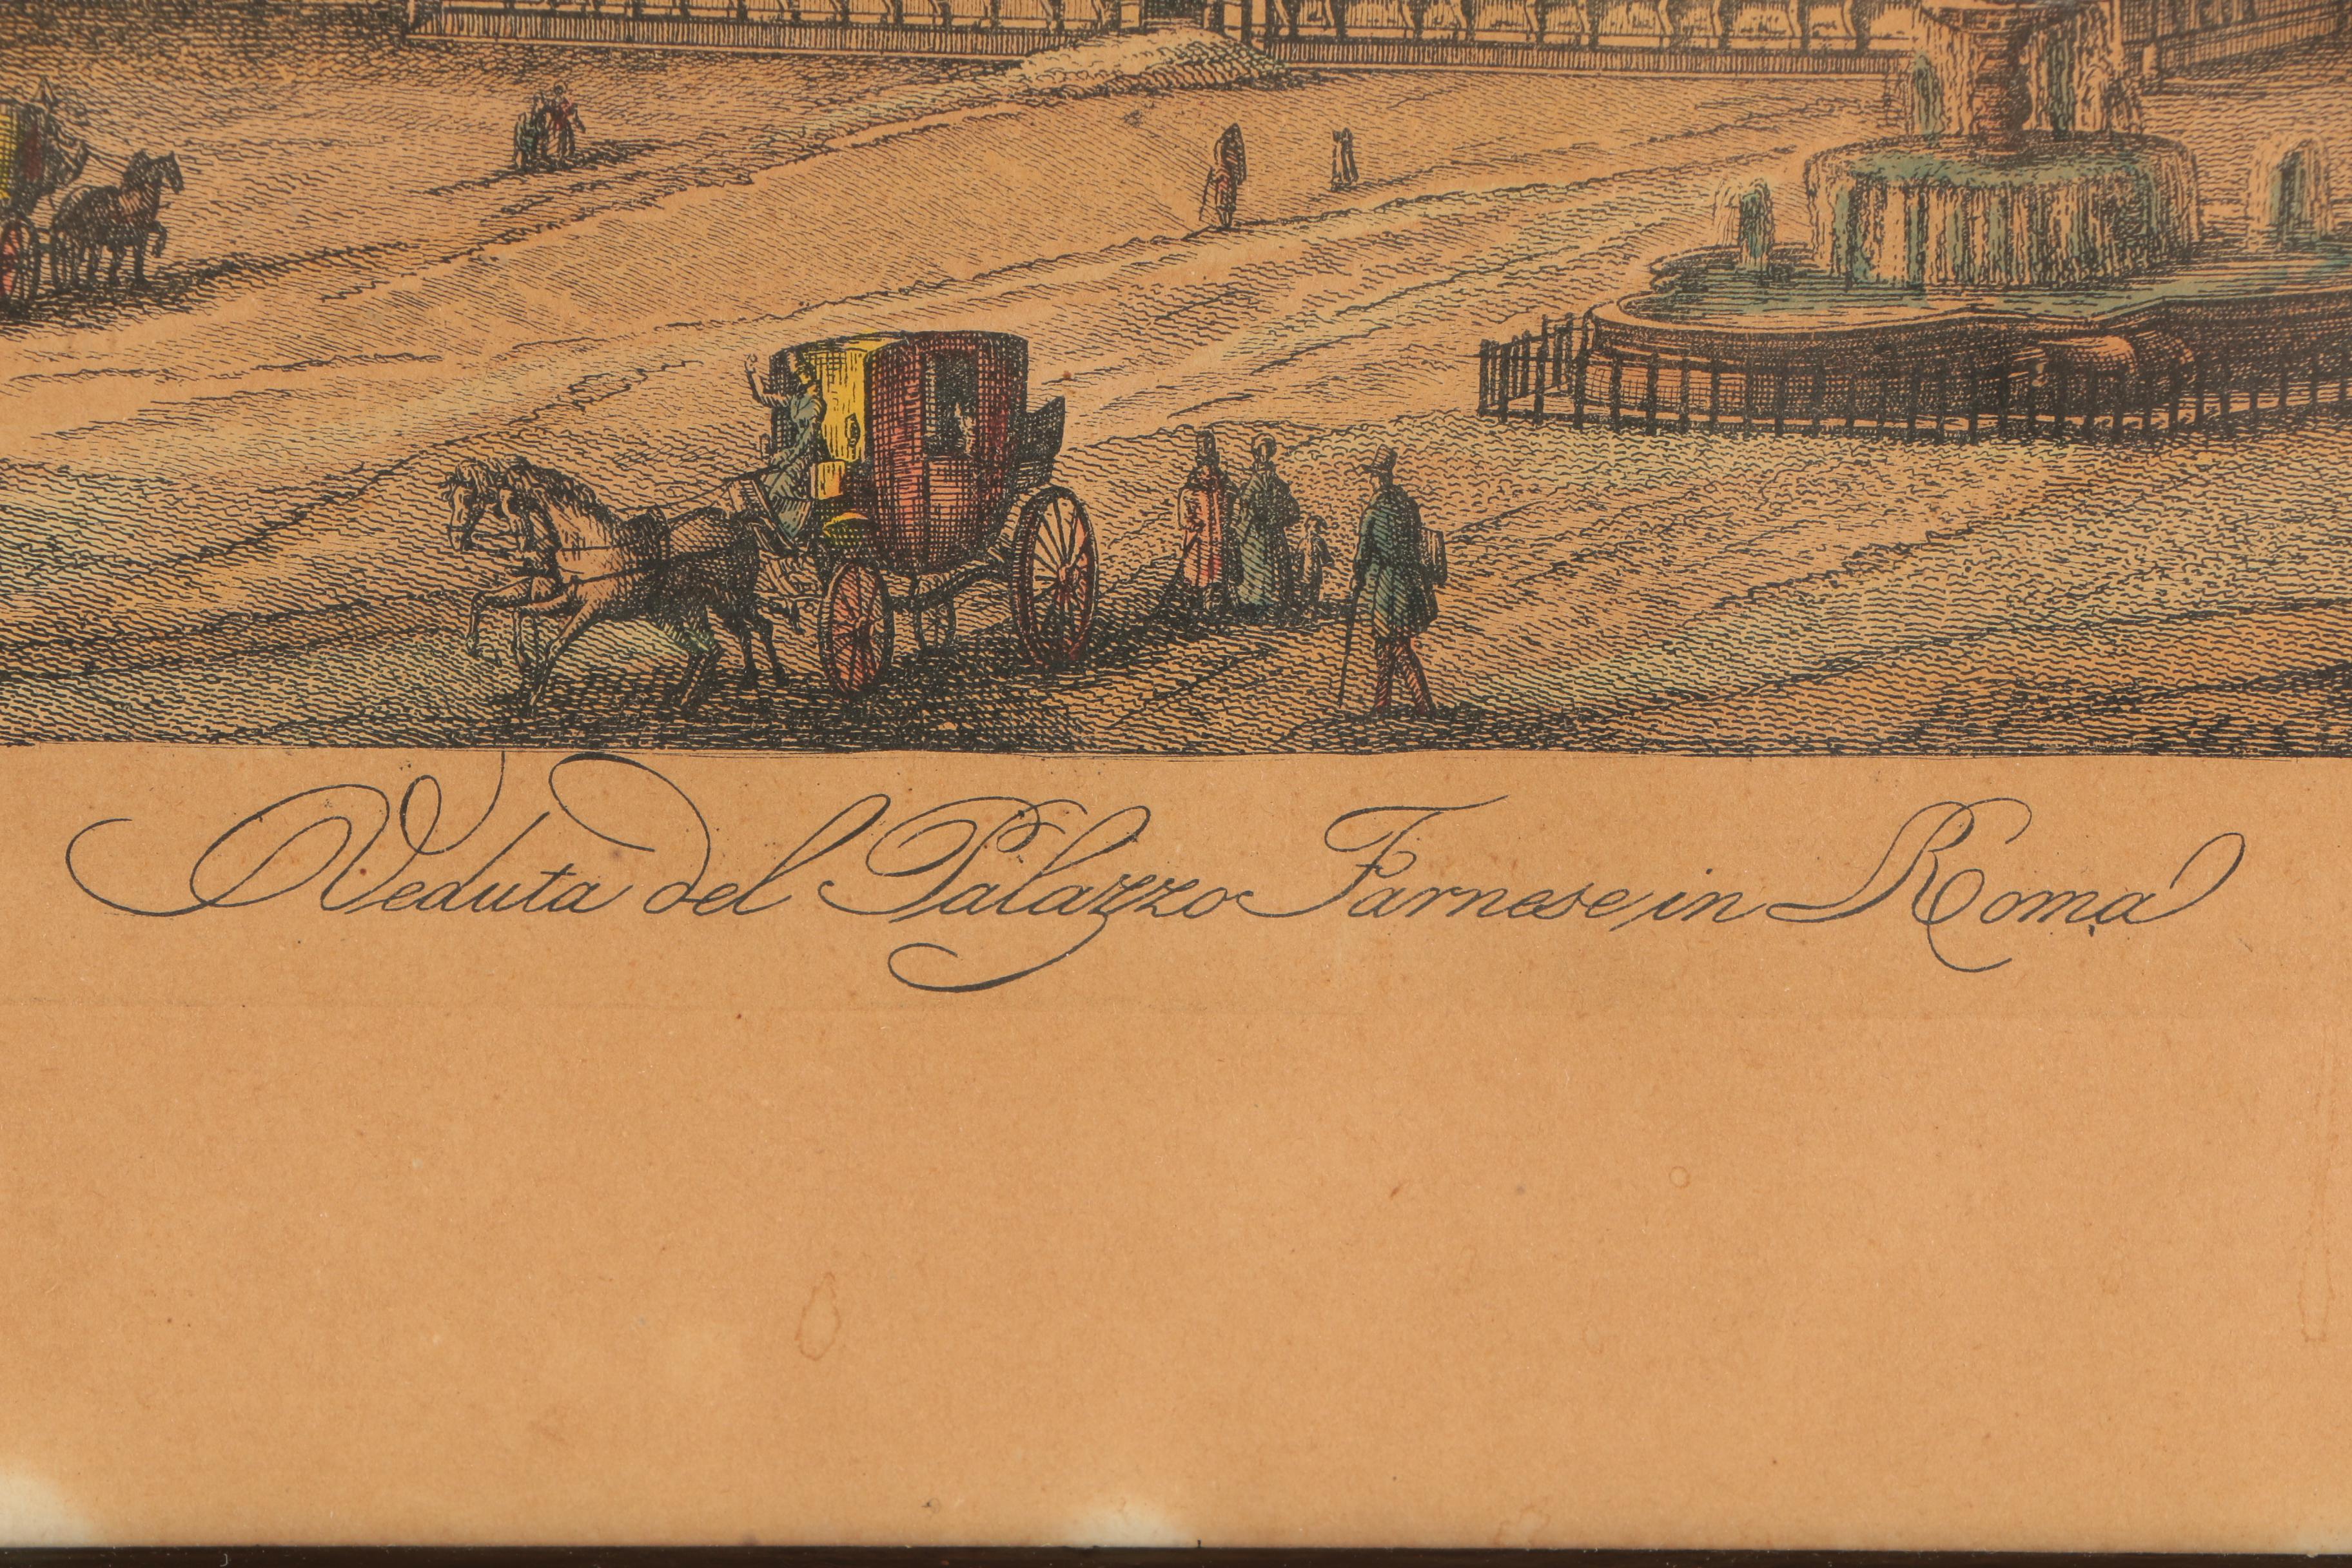 Veduta del Palazzo Farnese in Roma